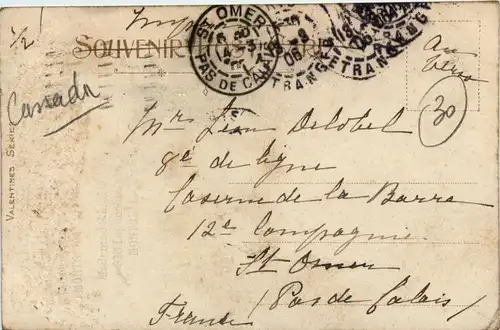 1/2
ST OMER
PAS DE CALAIS
SOUVENIR
ETRANGER
Au
Verso
Cassada
30
VALENTINES SERIES
Mrs Léon Delobel
8e de ligne
Caserne de la Barra
12e Compagnie
St Omer
(Pas de Calais)
France